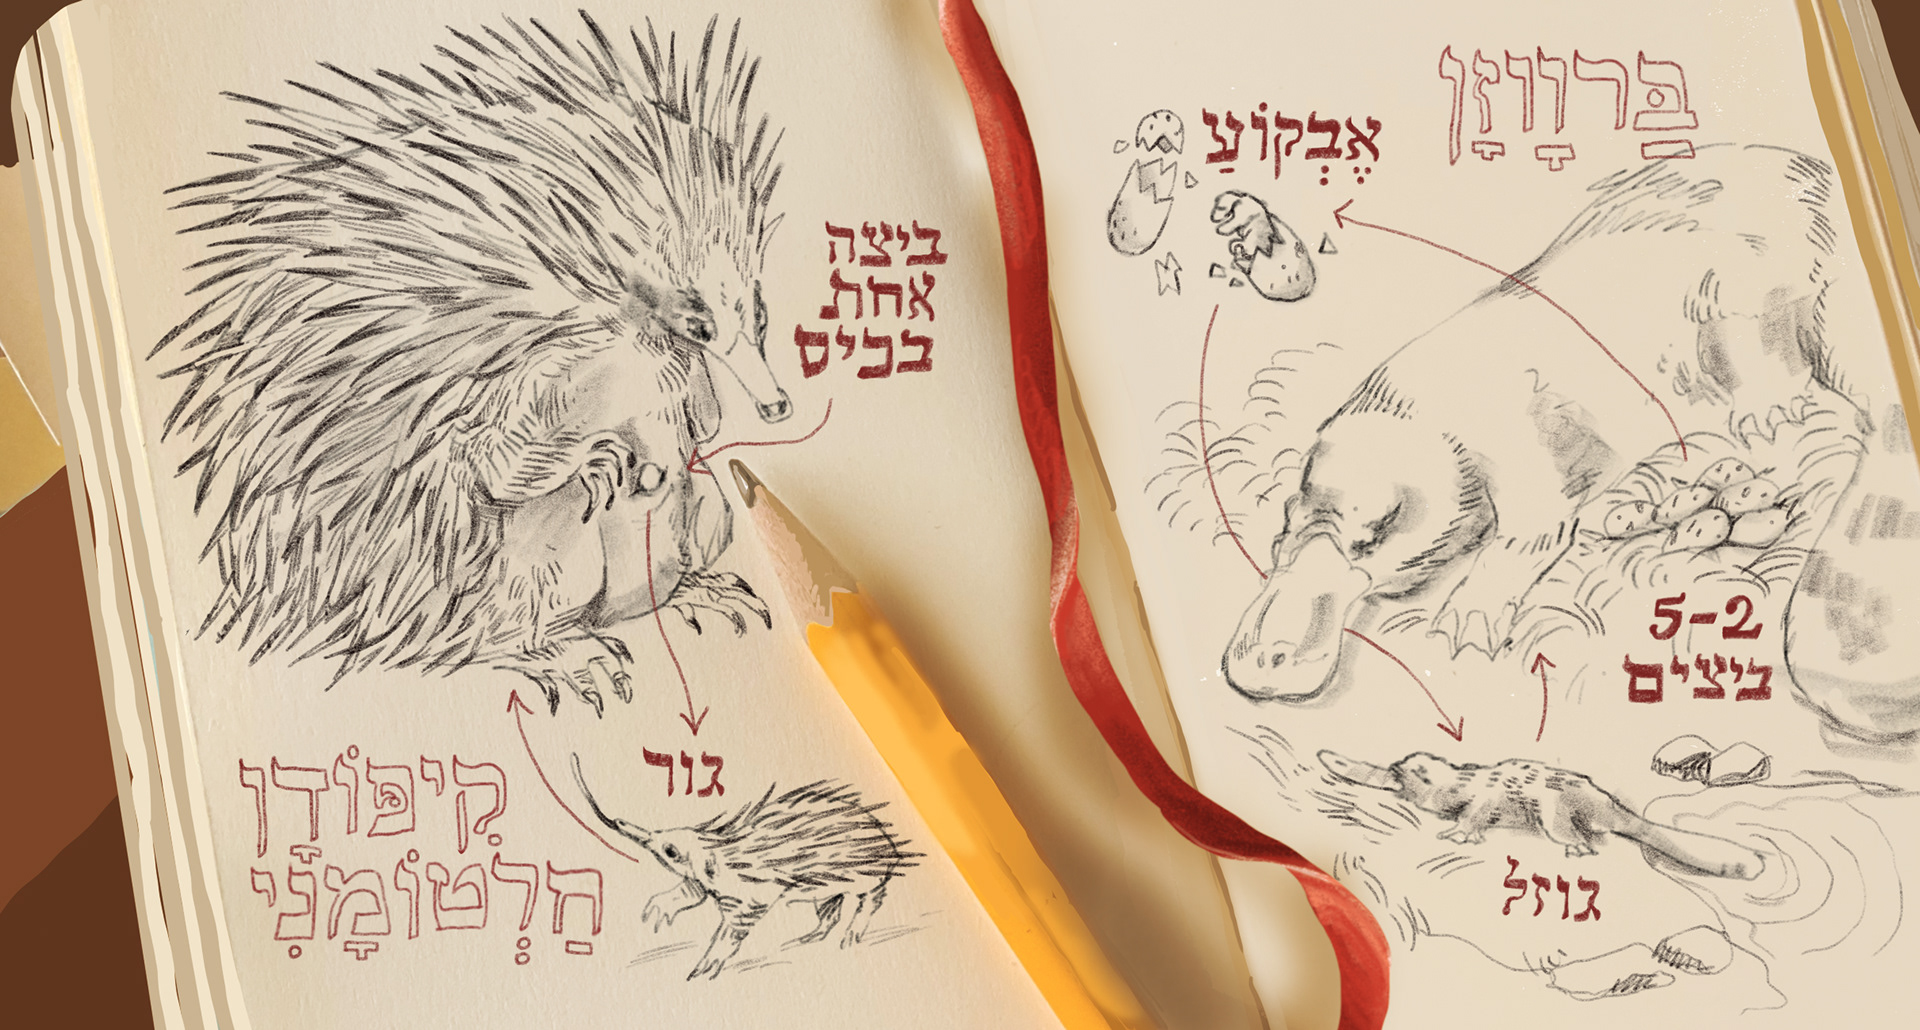 בַּרְוָזָן
אֶבְקוֹעַ
2-5
ביצים
גוזל
ביצה
אחת
בכיס
גור
קִיפּוֹדָן
חַלְטוֹמָנִי